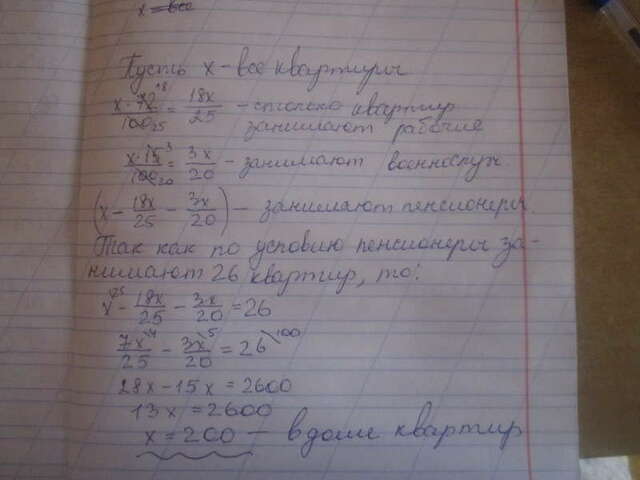 x = все
Пусть x - все квартиры
x·72¹⁸/100₂₅ = 18x/25 - столько квартир
занимают рабочие
x·15³/100₂₀ = 3x/20 - занимают военнослуж.
(x - 18x/25 - 3x/20) - занимают пенсионеры.
Так как по условию пенсионеры за-
нимают 26 квартир, то:
x²⁵ - 18x/25 - 3x/20 = 26
7x⁴/25 - 3x⁵/20 = 26¹⁰⁰
28x - 15x = 2600
13x = 2600
x = 200 - в доме квартир